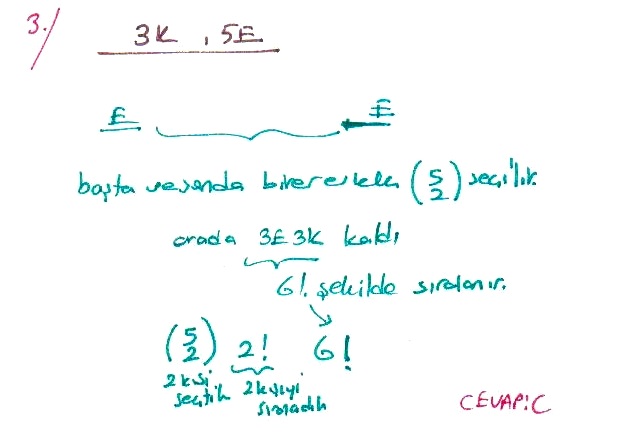 3.
3K , 5E
E E
başta ve sonda birer erkek (5 2) seçilir.
orada 3E 3K kaldı
6! şekilde sıralanır.
(5 2) 2! 6!
2 kişi 2 kişiyi
seçtik sıraladık
CEVAP: C